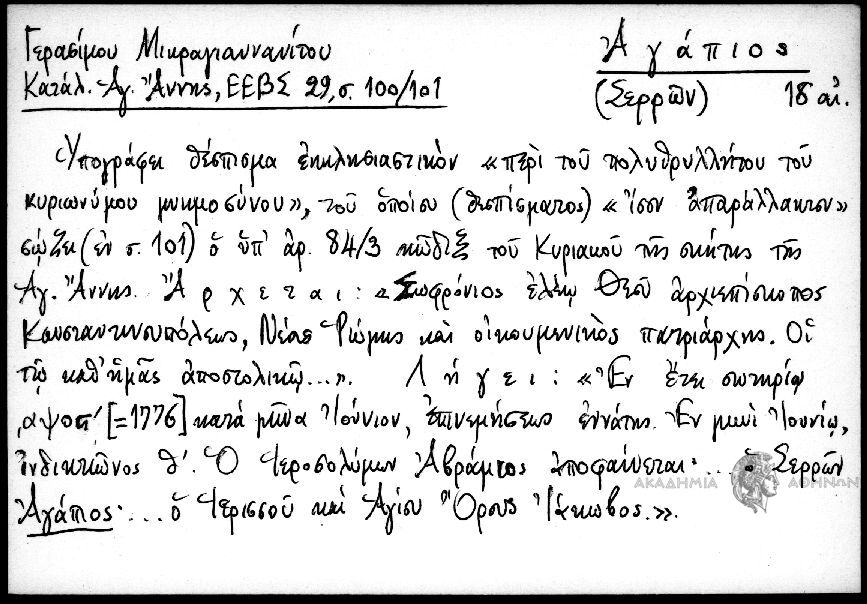 Γερασίμου Μικραγιαννανίτου
Κατάλ. Ἁγ. Ἄννης, ΕΕΒΣ 29, σ. 100/101
Ἀγάπιος
(Σερρῶν) 18 αἰ.
Ὑπογράφει θέσπισμα ἐκκλησιαστικὸν «περὶ τοῦ πολυθρυλλήτου τοῦ
κυριωνύμου μνημοσύνου», τοῦ ὁποίου (θεσπίσματος) «ἴσον ἀπαράλλακτον»
σῴζει (ἐν σ. 101) ὁ ὑπ' ἀρ. 84/3 κῶδιξ τοῦ Κυριακοῦ τῆς σκήτης τῆς
Ἁγ. Ἄννης. Ἄρχεται: «Σωφρόνιος ἐλέῳ Θεοῦ ἀρχιεπίσκοπος
Κωνσταντινουπόλεως, Νέας Ῥώμης καὶ οἰκουμενικὸς πατριάρχης. Οἱ
τῷ καθ' ἡμᾶς ἀποστολικῷ...». Λήγει: «Ἐν ἔτει σωτηρίῳ
͵αψος' [=1776] κατὰ μῆνα Ἰούνιον, ἐπινεμήσεως ἐννάτης. Ἐν μηνὶ Ἰουνίῳ,
ἰνδικτιῶνος θ'. Ὁ Ἱεροσολύμων Ἀβράμιος ἀποφαίνεται· ... ὁ Σερρῶν
Ἀγάπιος· ... ὁ Ἱερισσοῦ καὶ Ἁγίου Ὄρους Ἰάκωβος.».
ΑΚΑΔΗΜΙΑ ΑΘΗΝΩΝ